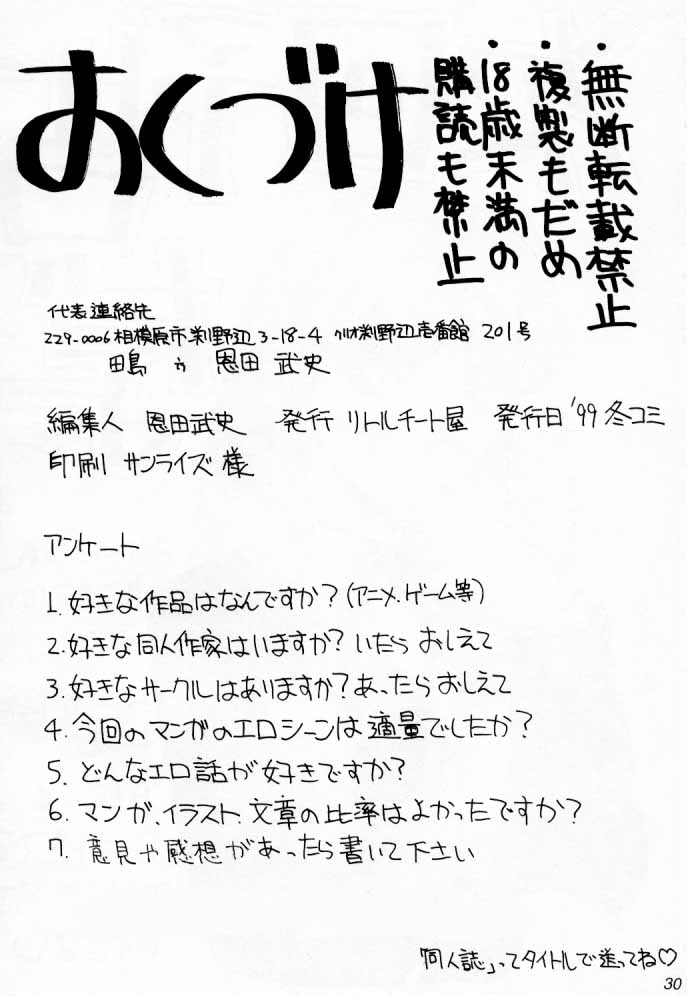 おくづけ
・無断転載禁止
・複製もだめ
・18歳未満の
購読も禁止
代表連絡先
229-0006相模原市渕野辺3-18-4 クリオ渕野辺壱番館 201号
恩田 武史
編集人 恩田武史 発行 リトルチート屋 発行日 '99冬コミ
印刷 サンライズ様
アンケート
1. 好きな作品はなんですか?(アニメ.ゲーム等)
2. 好きな同人作家はいますか? いたら おしえて
3. 好きなサークルはありますか? あったらおしえて
4. 今回のマンガのエロシーンは適量でしたか?
5. どんなエロ話が好きですか?
6. マンガ、イラスト、文章の比率はよかったですか?
7. 意見や感想があったら書いて下さい
「同人誌」ってタイトルで送ってね♡
30